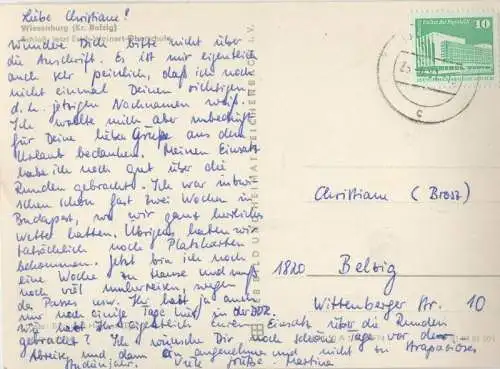 Liebe Christiane!
Wiesenburg (Kr. Belzig)
Schloß, jetzt Erich-Weinert-Oberschule
wundere Dich bitte nicht über
die Anschrift. Es ist mir eigentlich
auch sehr peinlich, daß ich noch
nicht einmal Deinen richtigen
d. h. jetzigen Nachnamen weiß.
Ich wollte mich aber unbedingt
für Deine lieben Grüße aus dem
Urlaub bedanken. Meinen Einsatz
habe ich noch gut über die
Runden gebracht. Ich war inzwi-
schen schon fast zwei Wochen in
Budapest, wo wir ganz herrliches
Wetter hatten. Übrigens haben wir
tatsächlich noch Platzkarten
bekommen. Jetzt bin ich noch
eine Woche zu Hause und muß
noch viel umherreisen, wegen
des Passes usw. Ihr habt ja auch
nur noch einige Tage hier in der DDR.
Wie habt Ihr eigentlich Euren Einsatz über die Runden
gebracht? Ich wünsche Dir noch schöne Tage vor der
Abreise, und dann ein angenehmes und nicht zu strapaziöses
Studienjahr. Viele Grüße Martina
BILD UND HEIMAT REICHENBACH I. V.
10
Christiane (Brosz)
1820 Belzig
Wittenberger Str. 10